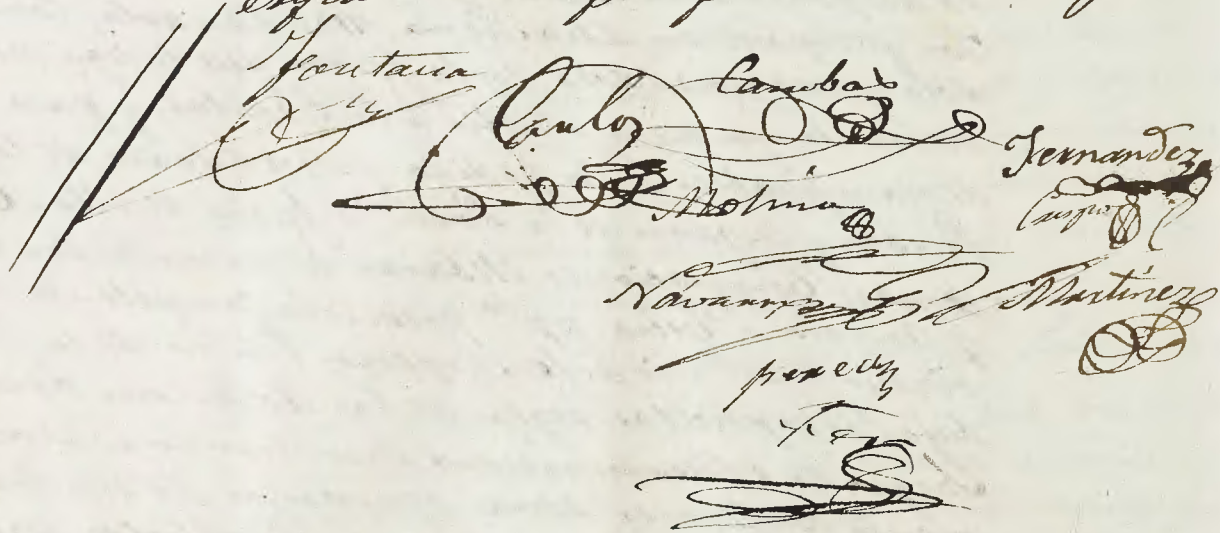 Fontana
Carlos
Canobas
Fernandez
Molina
Crespo
Navarro
Martinez
perez